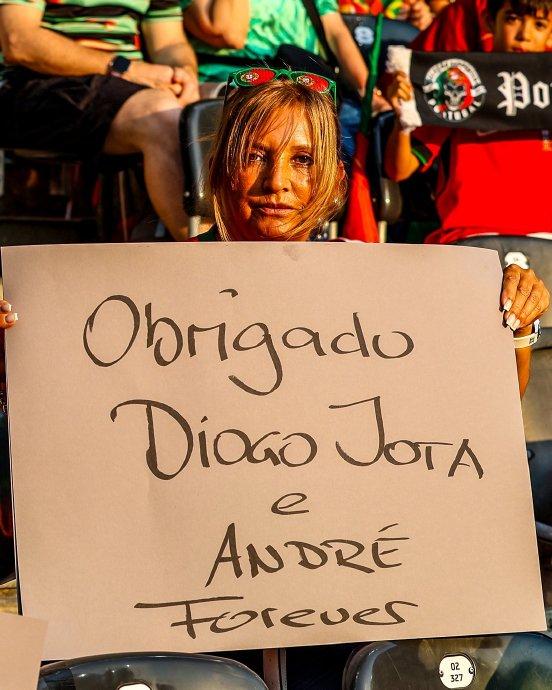 Obrigado
DIOGO JOTA
e
ANDRÉ
Forever
Po
02
327